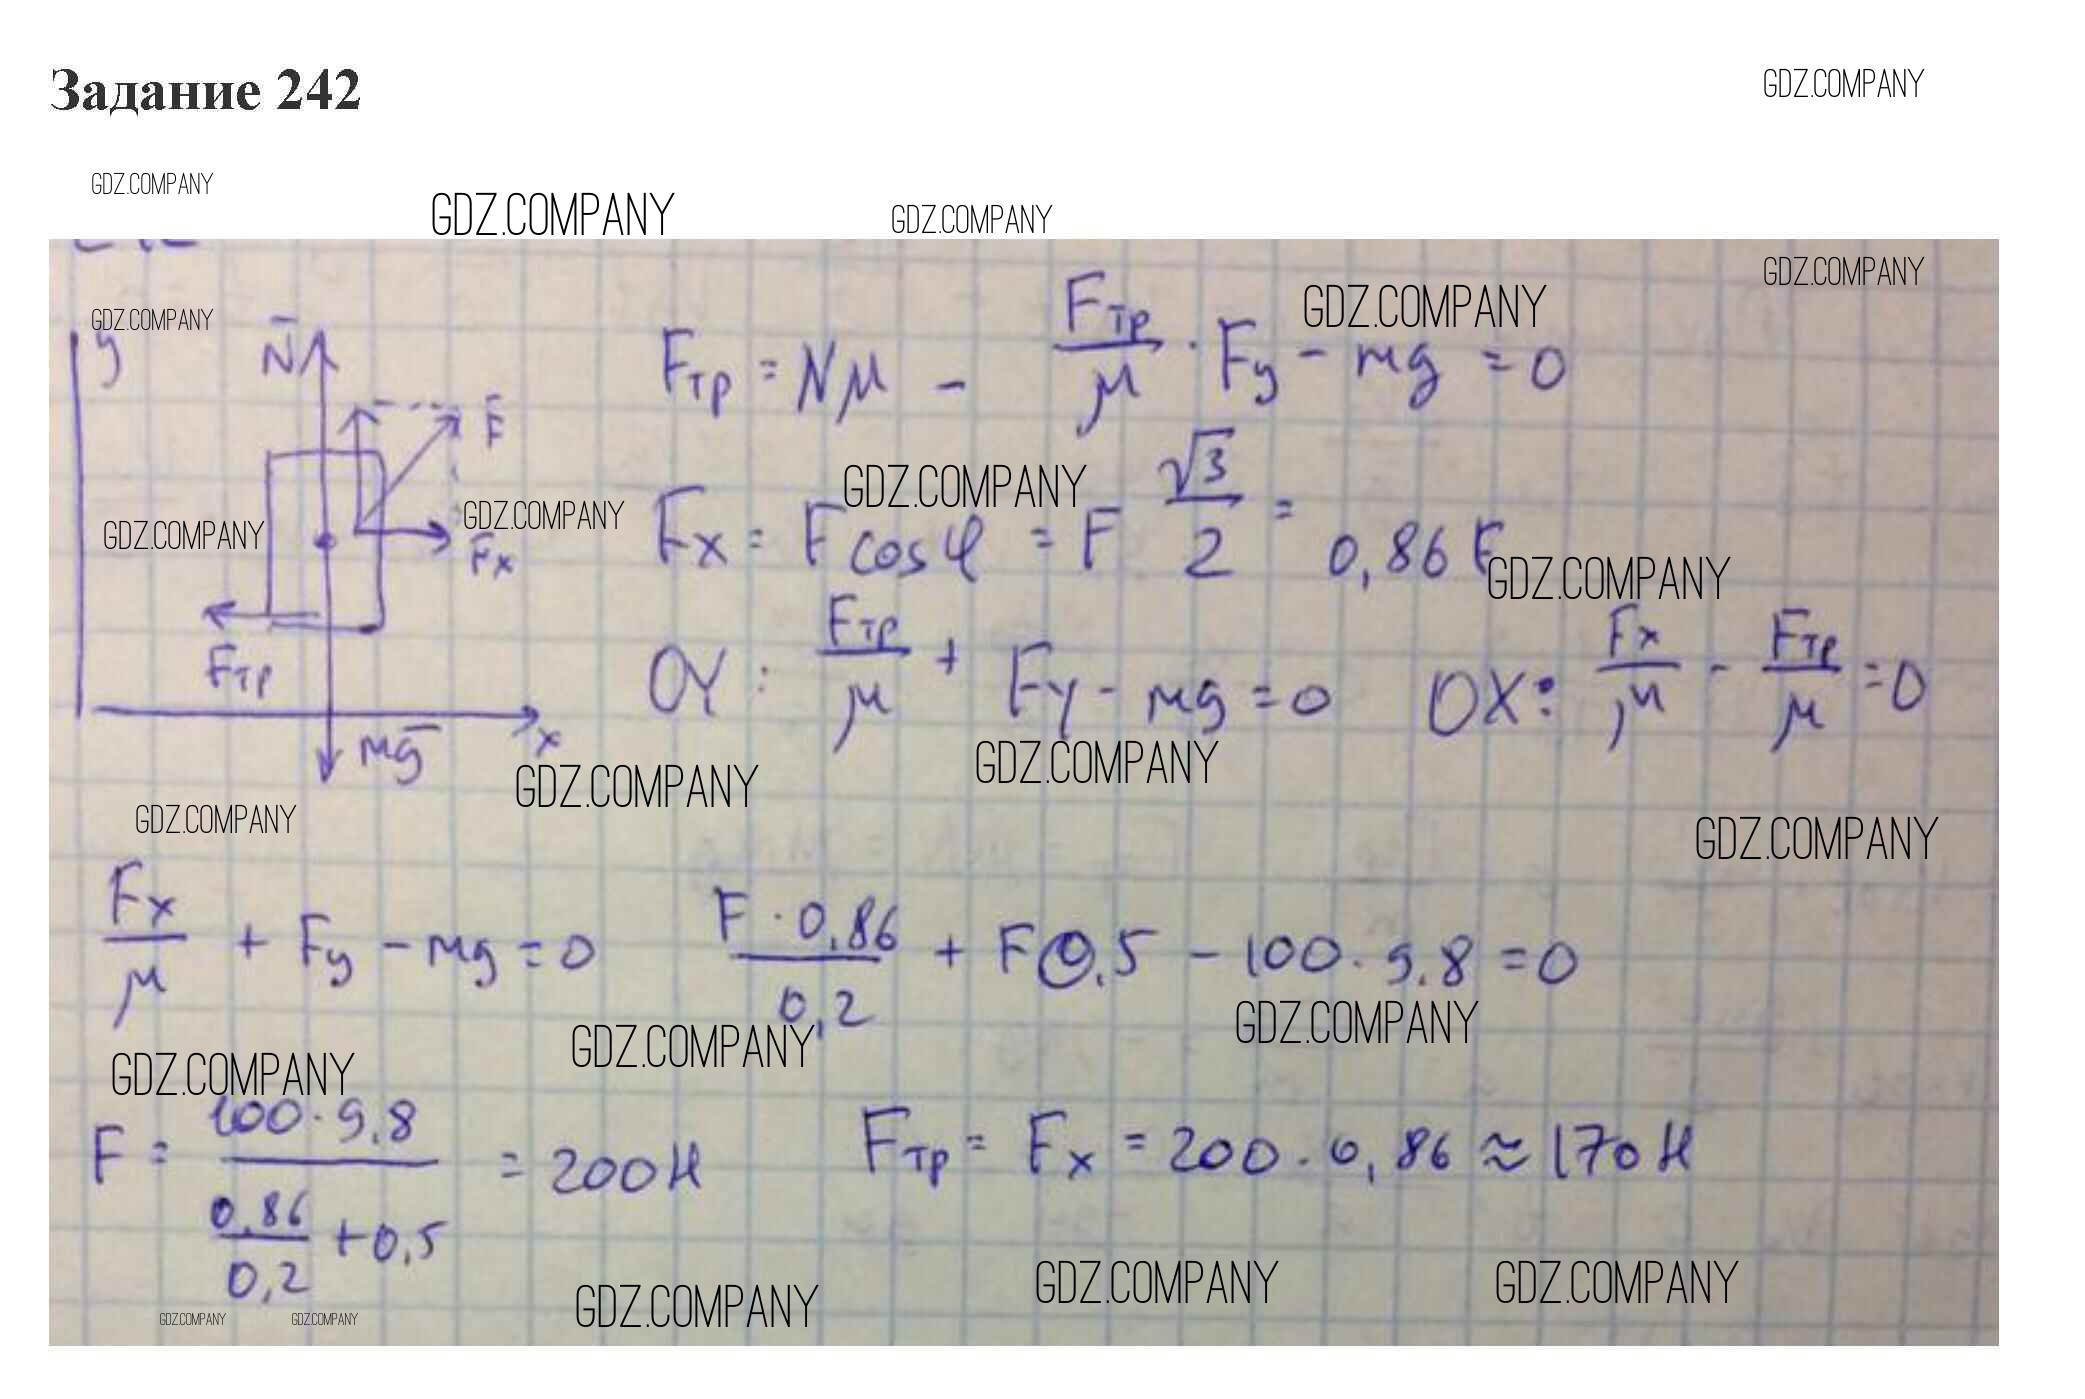 Задание 242
GDZ.COMPANY
GDZ.COMPANY
GDZ.COMPANY
GDZ.COMPANY
GDZ.COMPANY
GDZ.COMPANY
GDZ.COMPANY
y N̄ Fтр = Nμ - Fтр/μ · Fy - mg = 0
F̄
GDZ.COMPANY
GDZ.COMPANY
GDZ.COMPANY
Fx
Fx = F cosφ = F √3/2 = 0,86 F
GDZ.COMPANY
Fтр
OY: Fтр/μ + Fy - mg = 0 OX: Fx/μ - Fтр/μ = 0
mḡ x
GDZ.COMPANY
GDZ.COMPANY
GDZ.COMPANY
GDZ.COMPANY
Fx/μ + Fy - mg = 0 F · 0,86/0,2 + F 0,5 - 100 · 9,8 = 0
GDZ.COMPANY
GDZ.COMPANY
GDZ.COMPANY
F = 100 · 9,8/(0,86/0,2 + 0,5) = 200 Н Fтр = Fx = 200 · 0,86 ≈ 170 Н
GDZ.COMPANY
GDZ.COMPANY
GDZ.COMPANY
GDZ.COMPANY
GDZ.COMPANY